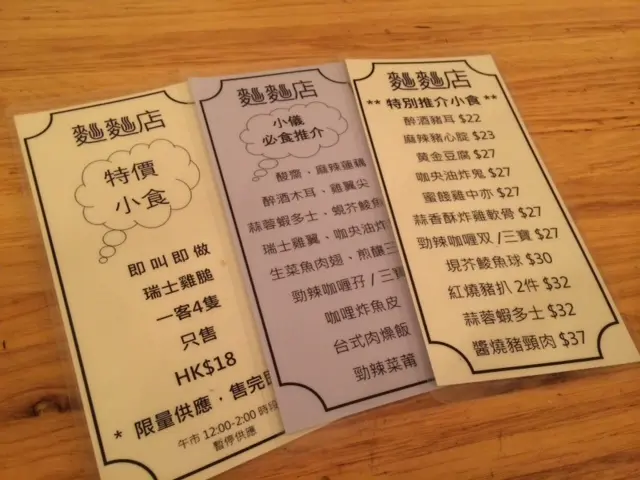 麵麵店
特價
小食
即叫即做
瑞士雞髄
一客4隻
只售
HK$18
* 限量供應，售完即
午市 12:00-2:00 時段
暫停供應
麵麵店
小儀
必食推介
酸齋、麻辣蓮藕
醉酒木耳、雞翼尖
蒜蓉蝦多士、蜆芥鯪魚
瑞士雞翼、咖央油炸
生菜魚肉翅、煎釀三
勁辣咖喱孖/三寶
咖哩炸魚皮
台式肉燥飯
勁辣菜莆
麵麵店
** 特別推介小食 **
醉酒豬耳 $22
麻辣豬心腚 $23
黄金豆腐 $27
咖央油炸鬼 $27
蜜餿雞中亦 $27
蒜香酥炸雞軟骨 $27
勁辣咖喱双/三寶 $27
現芥鯪魚球 $30
紅燒豬扒 2件 $32
蒜蓉蝦多士 $32
醬燒豬頸肉 $37